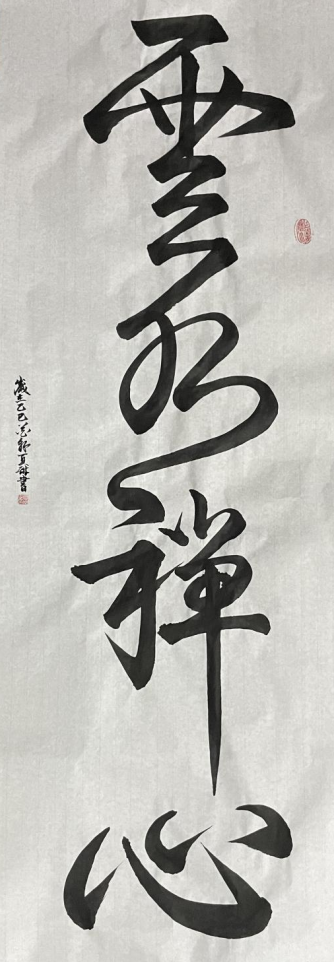 雲水禪心
歲在乙巳
夏
書